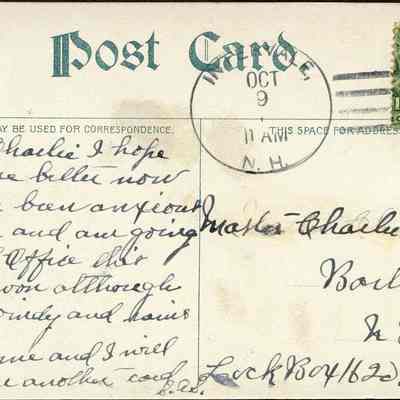 Post Card
INTERVALE,
OCT
9
11 AM
N. H.
AY BE USED FOR CORRESPONDENCE.
THIS SPACE FOR ADDRESS
Charlie I hope
re better now
e been anxious
and am going
Office this
noon although
windy and rains
me and I will
another card
Master Charlie
Lock Box 1620.